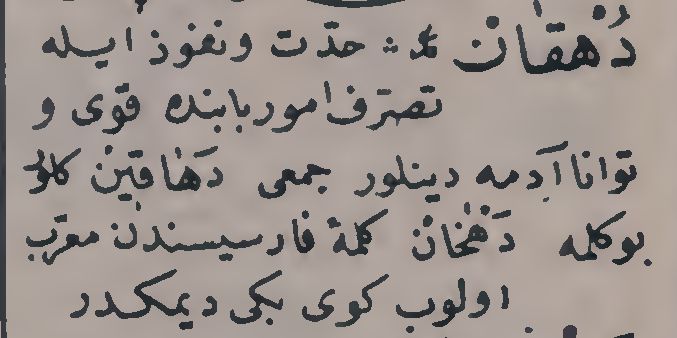 دُهقان حدّت ونفوذ ايله
تصرّف امور بابنده قوى و
توانا آدمه دينلور جمعى دَهاقين كلور
بوكلمه كلمهٔ فارسيسندن معرّب
اولوب كوى بكى ديمكدر